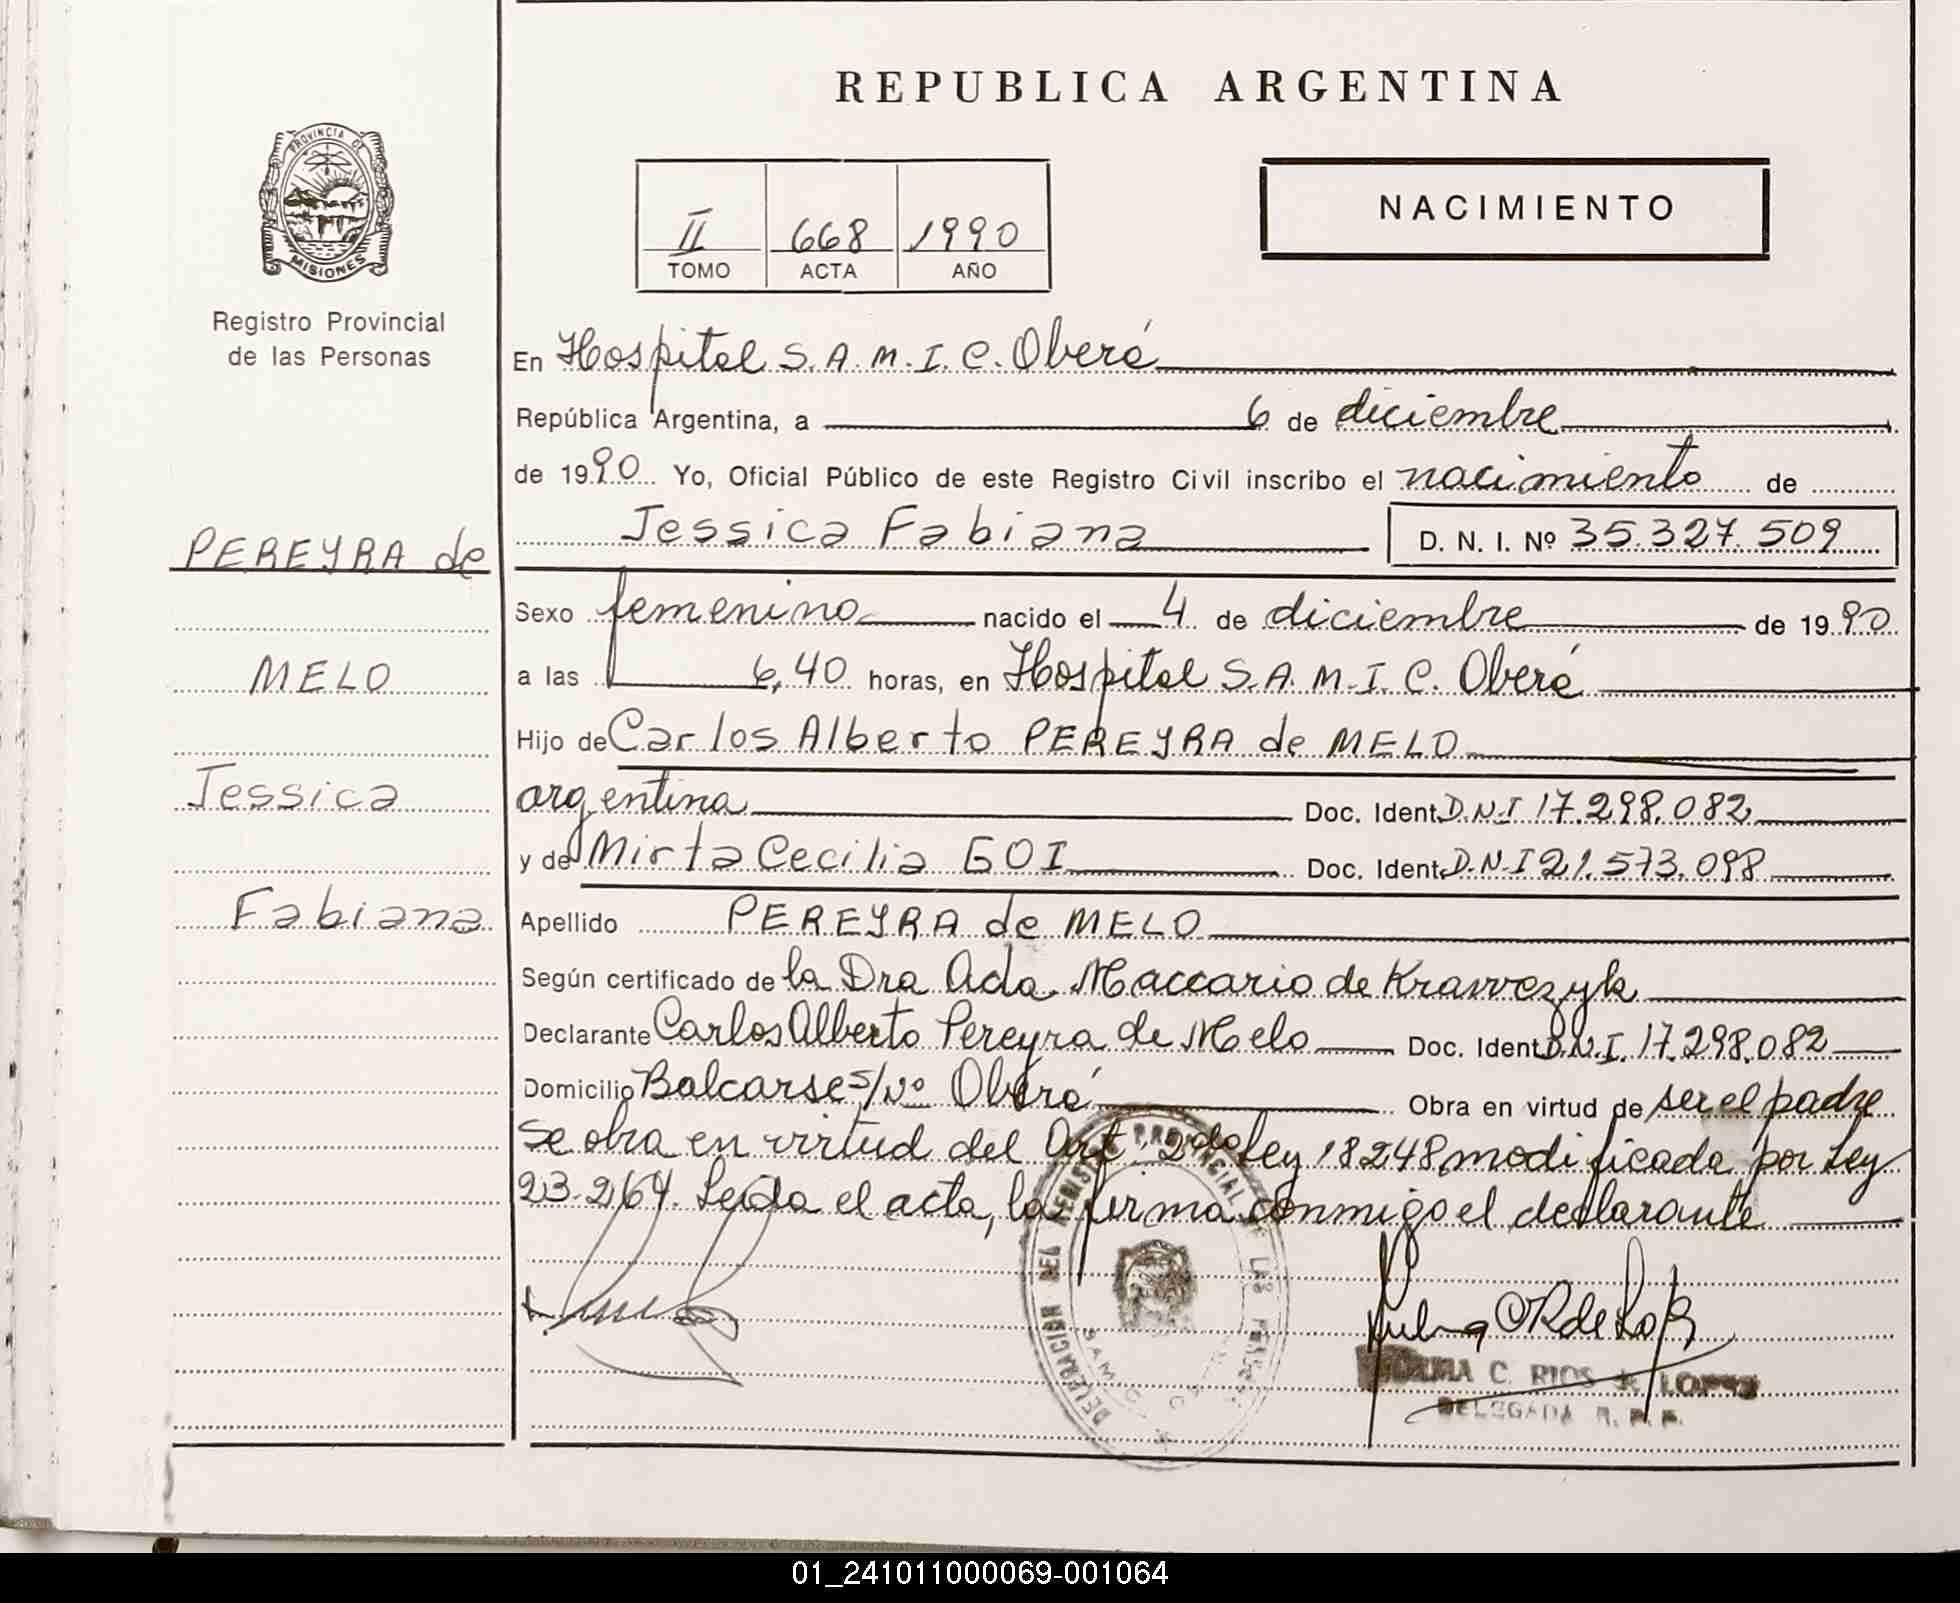 REPUBLICA ARGENTINA
PROVINCIA DE
MISIONES
Registro Provincial
de las Personas
II 668 1990
TOMO ACTA AÑO
NACIMIENTO
En Hospital S.A.M.I.C. Oberá
República Argentina, a 6 de diciembre
de 1990 Yo, Oficial Público de este Registro Civil inscribo el nacimiento de
Jessica Fabiana D. N. I. Nº 35.327.509
PEREYRA de
MELO
Jessica
Fabiana
Sexo femenino nacido el 4 de diciembre de 1990
a las 6,40 horas, en Hospital S.A.M.I.C. Oberá
Hijo de Carlos Alberto PEREYRA de MELO
argentina Doc. Ident. D.N.I 17.298.082
y de Mirta Cecilia GOI Doc. Ident. D.N.I 21.573.098
Apellido PEREYRA de MELO
Según certificado de la Dra Ada Maccario de Krawczyk
Declarante Carlos Alberto Pereyra de Melo Doc. Ident. D.N.I. 17.298.082
Domicilio Balcarse s/Nº Oberá Obra en virtud de ser el padre
Se obra en virtud del Art. 2do Ley 18248 modificada por Ley
23.264. Leída el acta, la firma conmigo el declarante
DELEGACION DEL REGISTRO PROVINCIAL DE LAS PERSONAS
C. RIOS de LOPEZ
DELEGADA R. P. P.
01_241011000069-001064